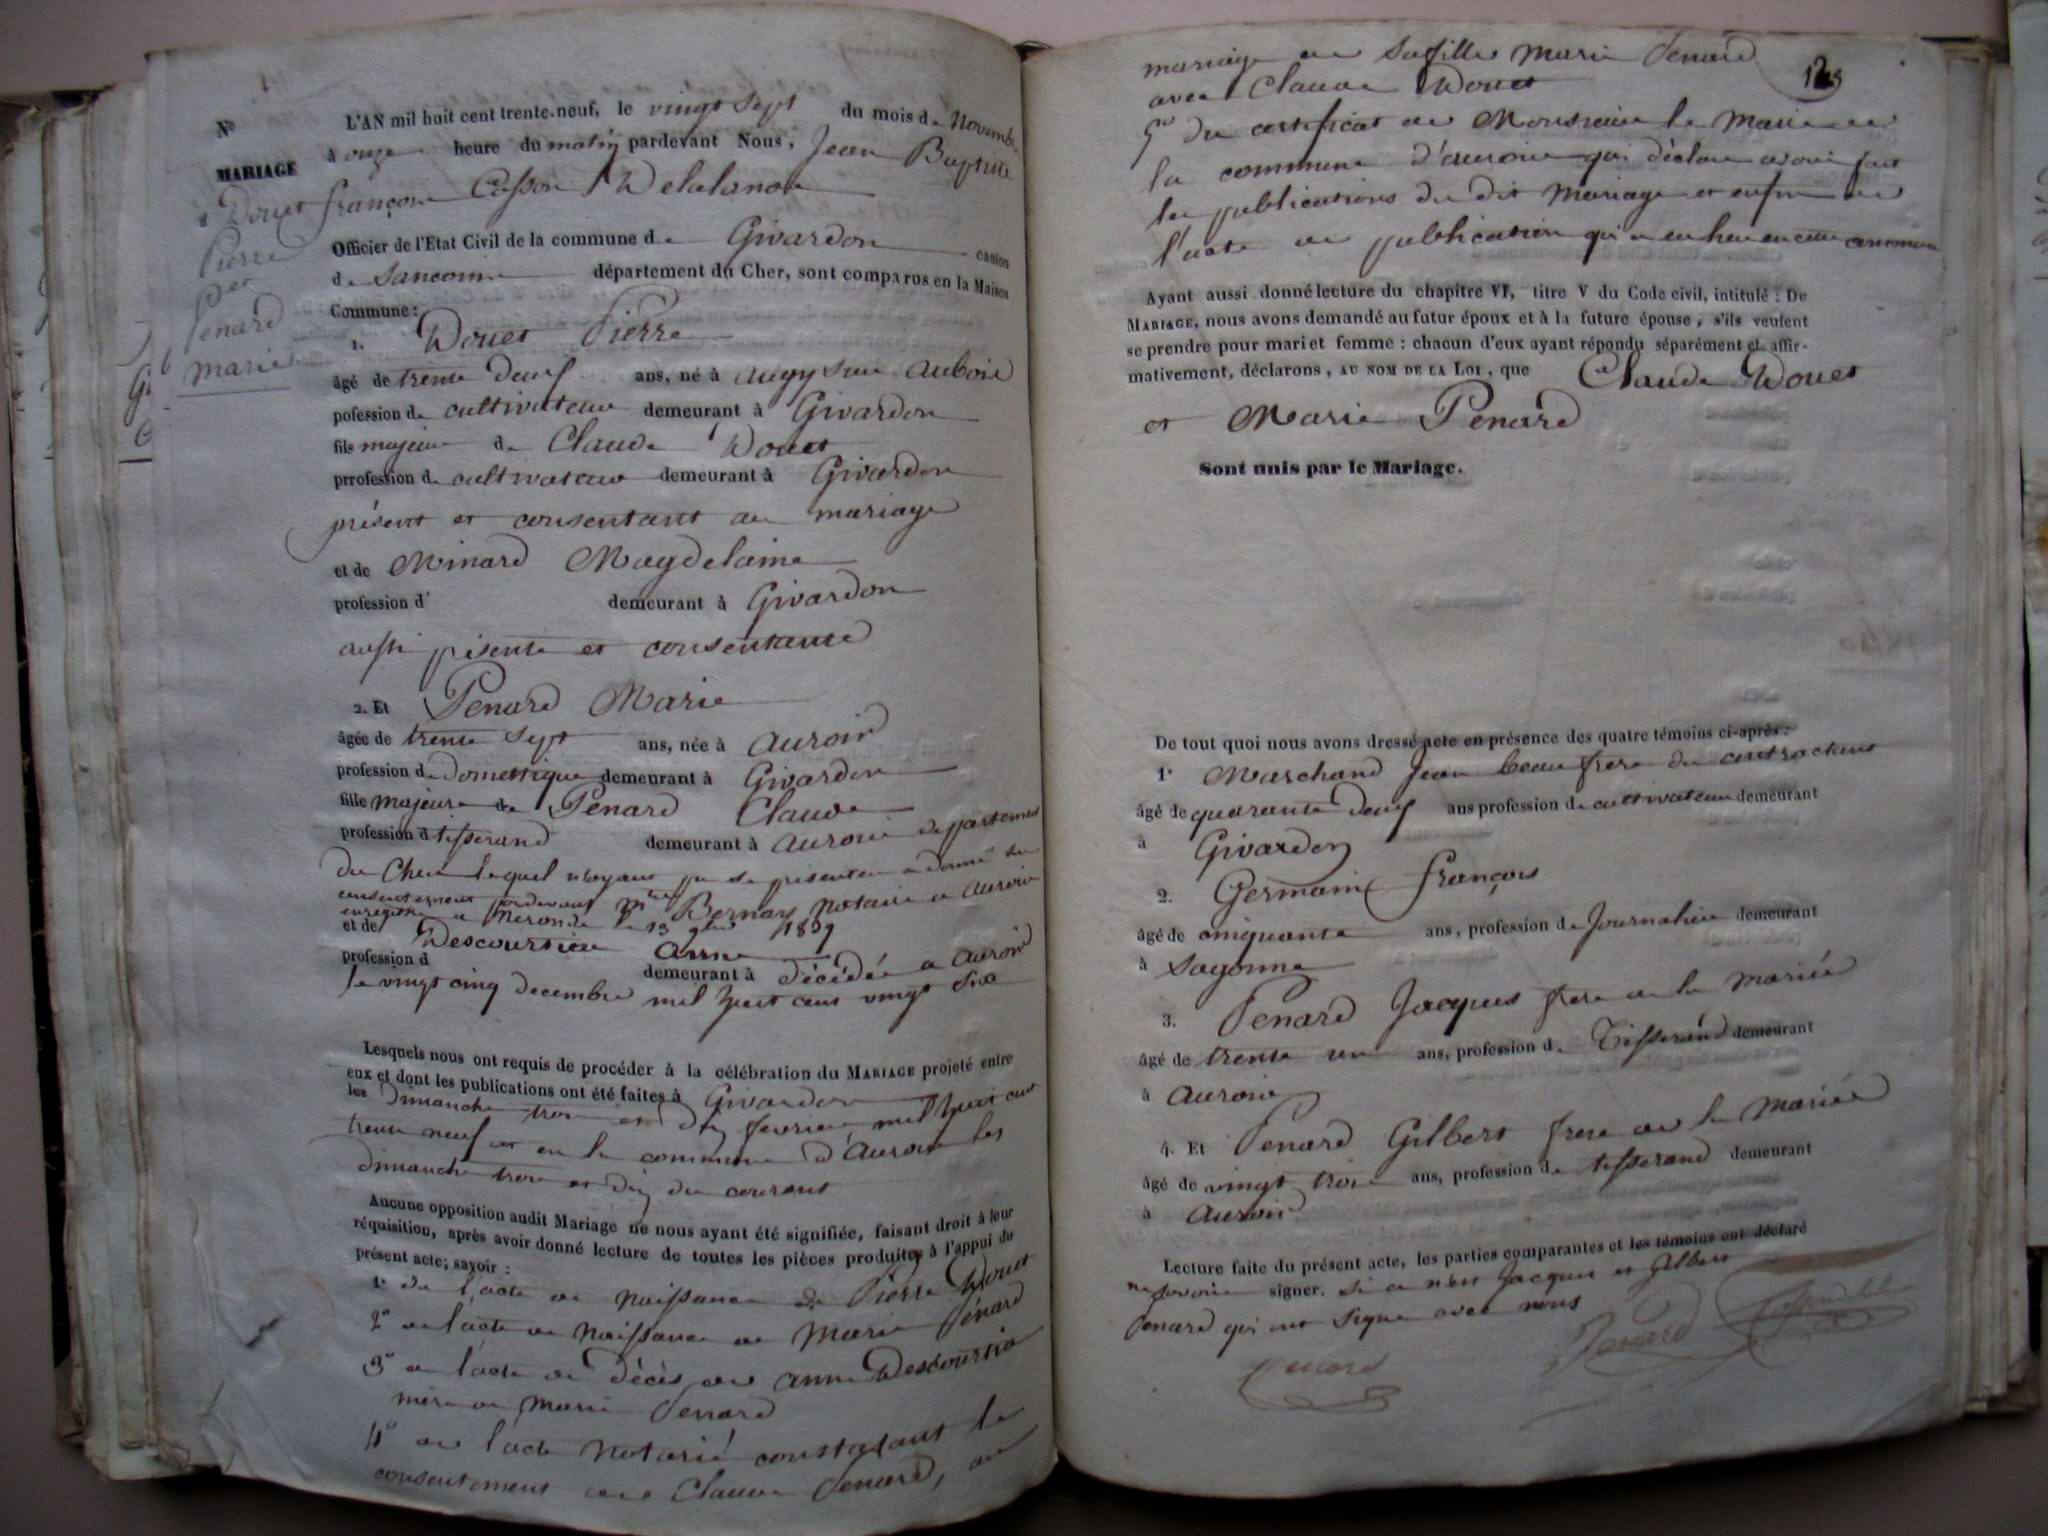 N°
MARIAGE
d Douet
Pierre
Per
Penard
marie
L'AN mil huit cent trente-neuf, le vingt Sept du mois de Novembre
à onze heure du matin pardevant Nous, Jean Baptiste
françois Casson Delalande
Officier de l'Etat Civil de la commune de Givardon canton
de Sancoins département du Cher, sont comparus en la Maison
Commune:
1. Douet Pierre
âgé de trente deux ans, né à augy Sur Auboie
pofession de cultivateur demeurant à Givardon
fils majeur de Claude Douet
prrofession de cultivateur demeurant à Givardon
présent et consentant au mariage
et de Minard Magdelaine
profession d' demeurant à Givardon
aussi présente et consentante
2. Et Penard Marie
âgée de trente Sept ans, née à auroir
profession de Domestique demeurant à Givardon
fille majeure de Penard Claude
profession d tisserand demeurant à auroir departement
du Cher lequel n'ayant pu se presenter a donné son
consentement pardevant mtre Bernard notaire a auroir
enregistré a Nerondes le 13 9bre 1839
et de Descoursiere anne
profession d demeurant à décédée a auroir
le vingt cinq decembre mil huit cent vingt Six
Lesquels nous ont requis de procéder à la célébration du MARIAGE projeté entre
eux et dont les publications ont été faites à Givardon
les Dimanche trois et dix fevrier mil huit cent
trente neuf et en la commune d'auroir les
dimanche trois et dix du courant
Aucune opposition audit Mariage ne nous ayant été signifiée, faisant droit à leur
réquisition, après avoir donné lecture de toutes les pièces produites à l'appui du
présent acte; savoir:
1° de l'acte de naissance de Pierre Douet
2° de l'acte de Naissance de Marie Pénard
3° de l'acte de Décès de anne Descoursie
mère de Marie Penard
4° de l'acte notarié constatant le
consentement de Claude Penard, au
mariage de Safille Marie Penard
avec Claude Douet
5° du certificat de Monsieur le Maire de
la commune d'auroir qui déclare avoir fait
les publications du dit Mariage et enfin de
l'acte de publication qui a eu lieu en cette commune
Ayant aussi donné lecture du chapitre VI, titre V du Code civil, intitulé: DU
MARIAGE, nous avons demandé au futur époux et à la future épouse, s'ils veulent
se prendre pour mari et femme: chacun d'eux ayant répondu séparément et affir-
mativement, déclarons, AU NOM DE LA LOI, que Claude Douet
et Marie Penard
Sont unis par le Mariage.
De tout quoi nous avons dressé acte en présence des quatre témoins ci-après:
1° Marchand Jean beau frere du contractant
âgé de quarante deux ans profession de cultivateur demeurant
à Givardon
2. Germain françois
âgé de cinquante ans, profession de Journalier demeurant
à Sagonne
3. Penard Jacques frere de la mariée
âgé de trente un ans, profession de Tisserand demeurant
à auroir
4. Et Penard Gilbert frere de la Mariée
âgé de vingt trois ans, profession de tisserand demeurant
à auroir
Lecture faite du présent acte, les parties comparantes et les témoins ont déclaré
ne savoir signer. Si ce n'est Jacques et Gilbert
Penard qui ont Signé avec nous
Penard
Penard